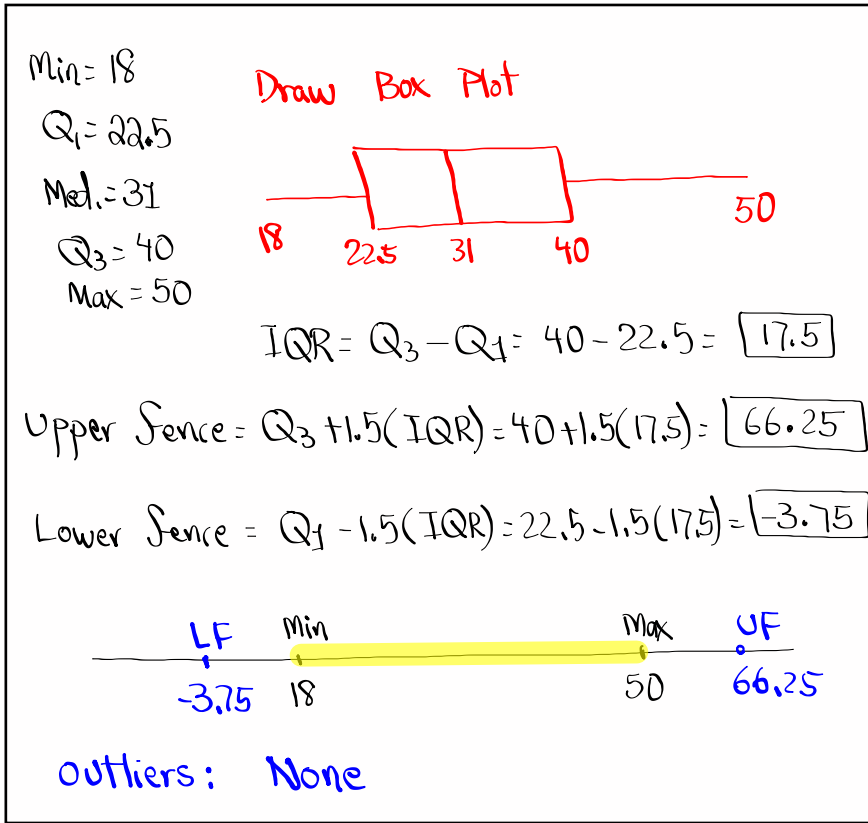 Min = 18
Draw Box Plot
Q₁ = 22.5
Med. = 31
Q₃ = 40
Max = 50
18 22.5 31 40 50
IQR = Q₃ - Q₁ = 40 - 22.5 = 17.5
Upper fence = Q₃ + 1.5(IQR) = 40 + 1.5(17.5) = 66.25
Lower fence = Q₁ - 1.5(IQR) = 22.5 - 1.5(17.5) = -3.75
LF Min Max UF
-3.75 18 50 66.25
Outliers: None